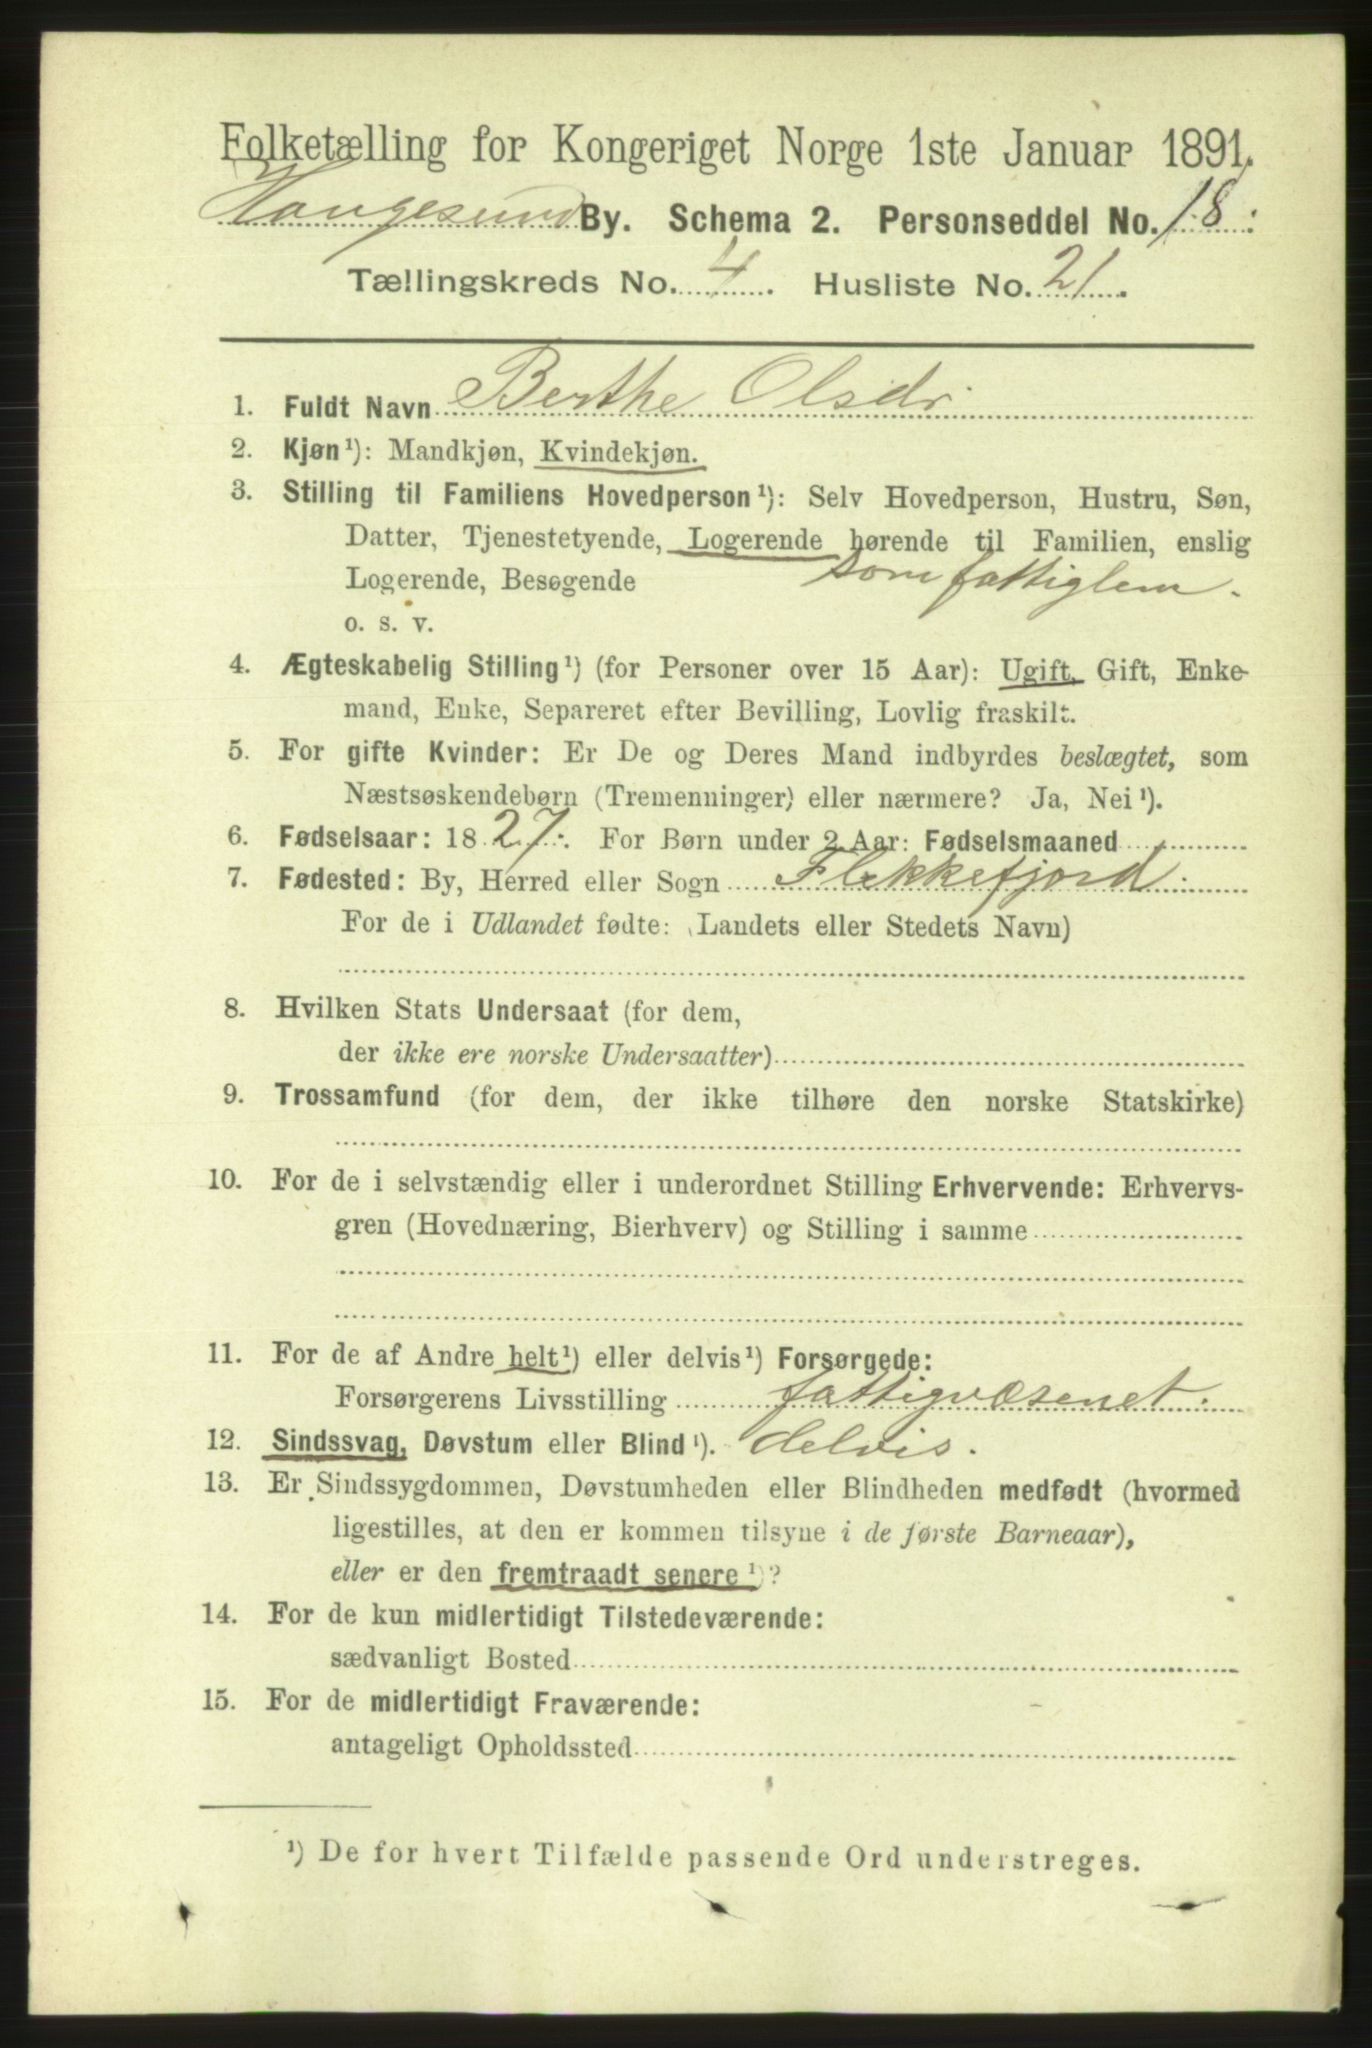 Folketælling for Kongeriget Norge 1ste Januar 1891.
Haugesund By. Schema 2. Personseddel No. 18.
Tællingskreds No. 4. Husliste No. 21.
1. Fuldt Navn Berthe Olsdr
2. Kjøn¹): Mandkjøn, Kvindekjøn.
3. Stilling til Familiens Hovedperson¹): Selv Hovedperson, Hustru, Søn,
Datter, Tjenestetyende, Logerende hørende til Familien, enslig
Logerende, Besøgende som fattiglem.
o. s. v.
4. Ægteskabelig Stilling¹) (for Personer over 15 Aar): Ugift, Gift, Enke-
mand, Enke, Separeret efter Bevilling, Lovlig fraskilt.
5. For gifte Kvinder: Er De og Deres Mand indbyrdes beslægtet, som
Næstsøskendebørn (Tremenninger) eller nærmere? Ja, Nei¹).
6. Fødselsaar: 1827. For Børn under 2 Aar: Fødselsmaaned
7. Fødested: By, Herred eller Sogn Flekkefjord.
For de i Udlandet fødte: (Landets eller Stedets Navn)
8. Hvilken Stats Undersaat (for dem,
der ikke ere norske Undersaatter)
9. Trossamfund (for dem, der ikke tilhøre den norske Statskirke)
10. For de i selvstændig eller i underordnet Stilling Erhvervende: Erhvervs-
gren (Hovednæring, Bierhverv) og Stilling i samme
11. For de af Andre helt¹) eller delvis¹) Forsørgede:
Forsørgerens Livsstilling fattigvæsenet.
12. Sindssvag, Døvstum eller Blind¹). delvis.
13. Er Sindssygdommen, Døvstumheden eller Blindheden medfødt (hvormed
ligestilles, at den er kommen tilsyne i de første Barneaar),
eller er den fremtraadt senere¹)?
14. For de kun midlertidigt Tilstedeværende:
sædvanligt Bosted
15. For de midlertidigt Fraværende:
antageligt Opholdssted
¹) De for hvert Tilfælde passende Ord understreges.